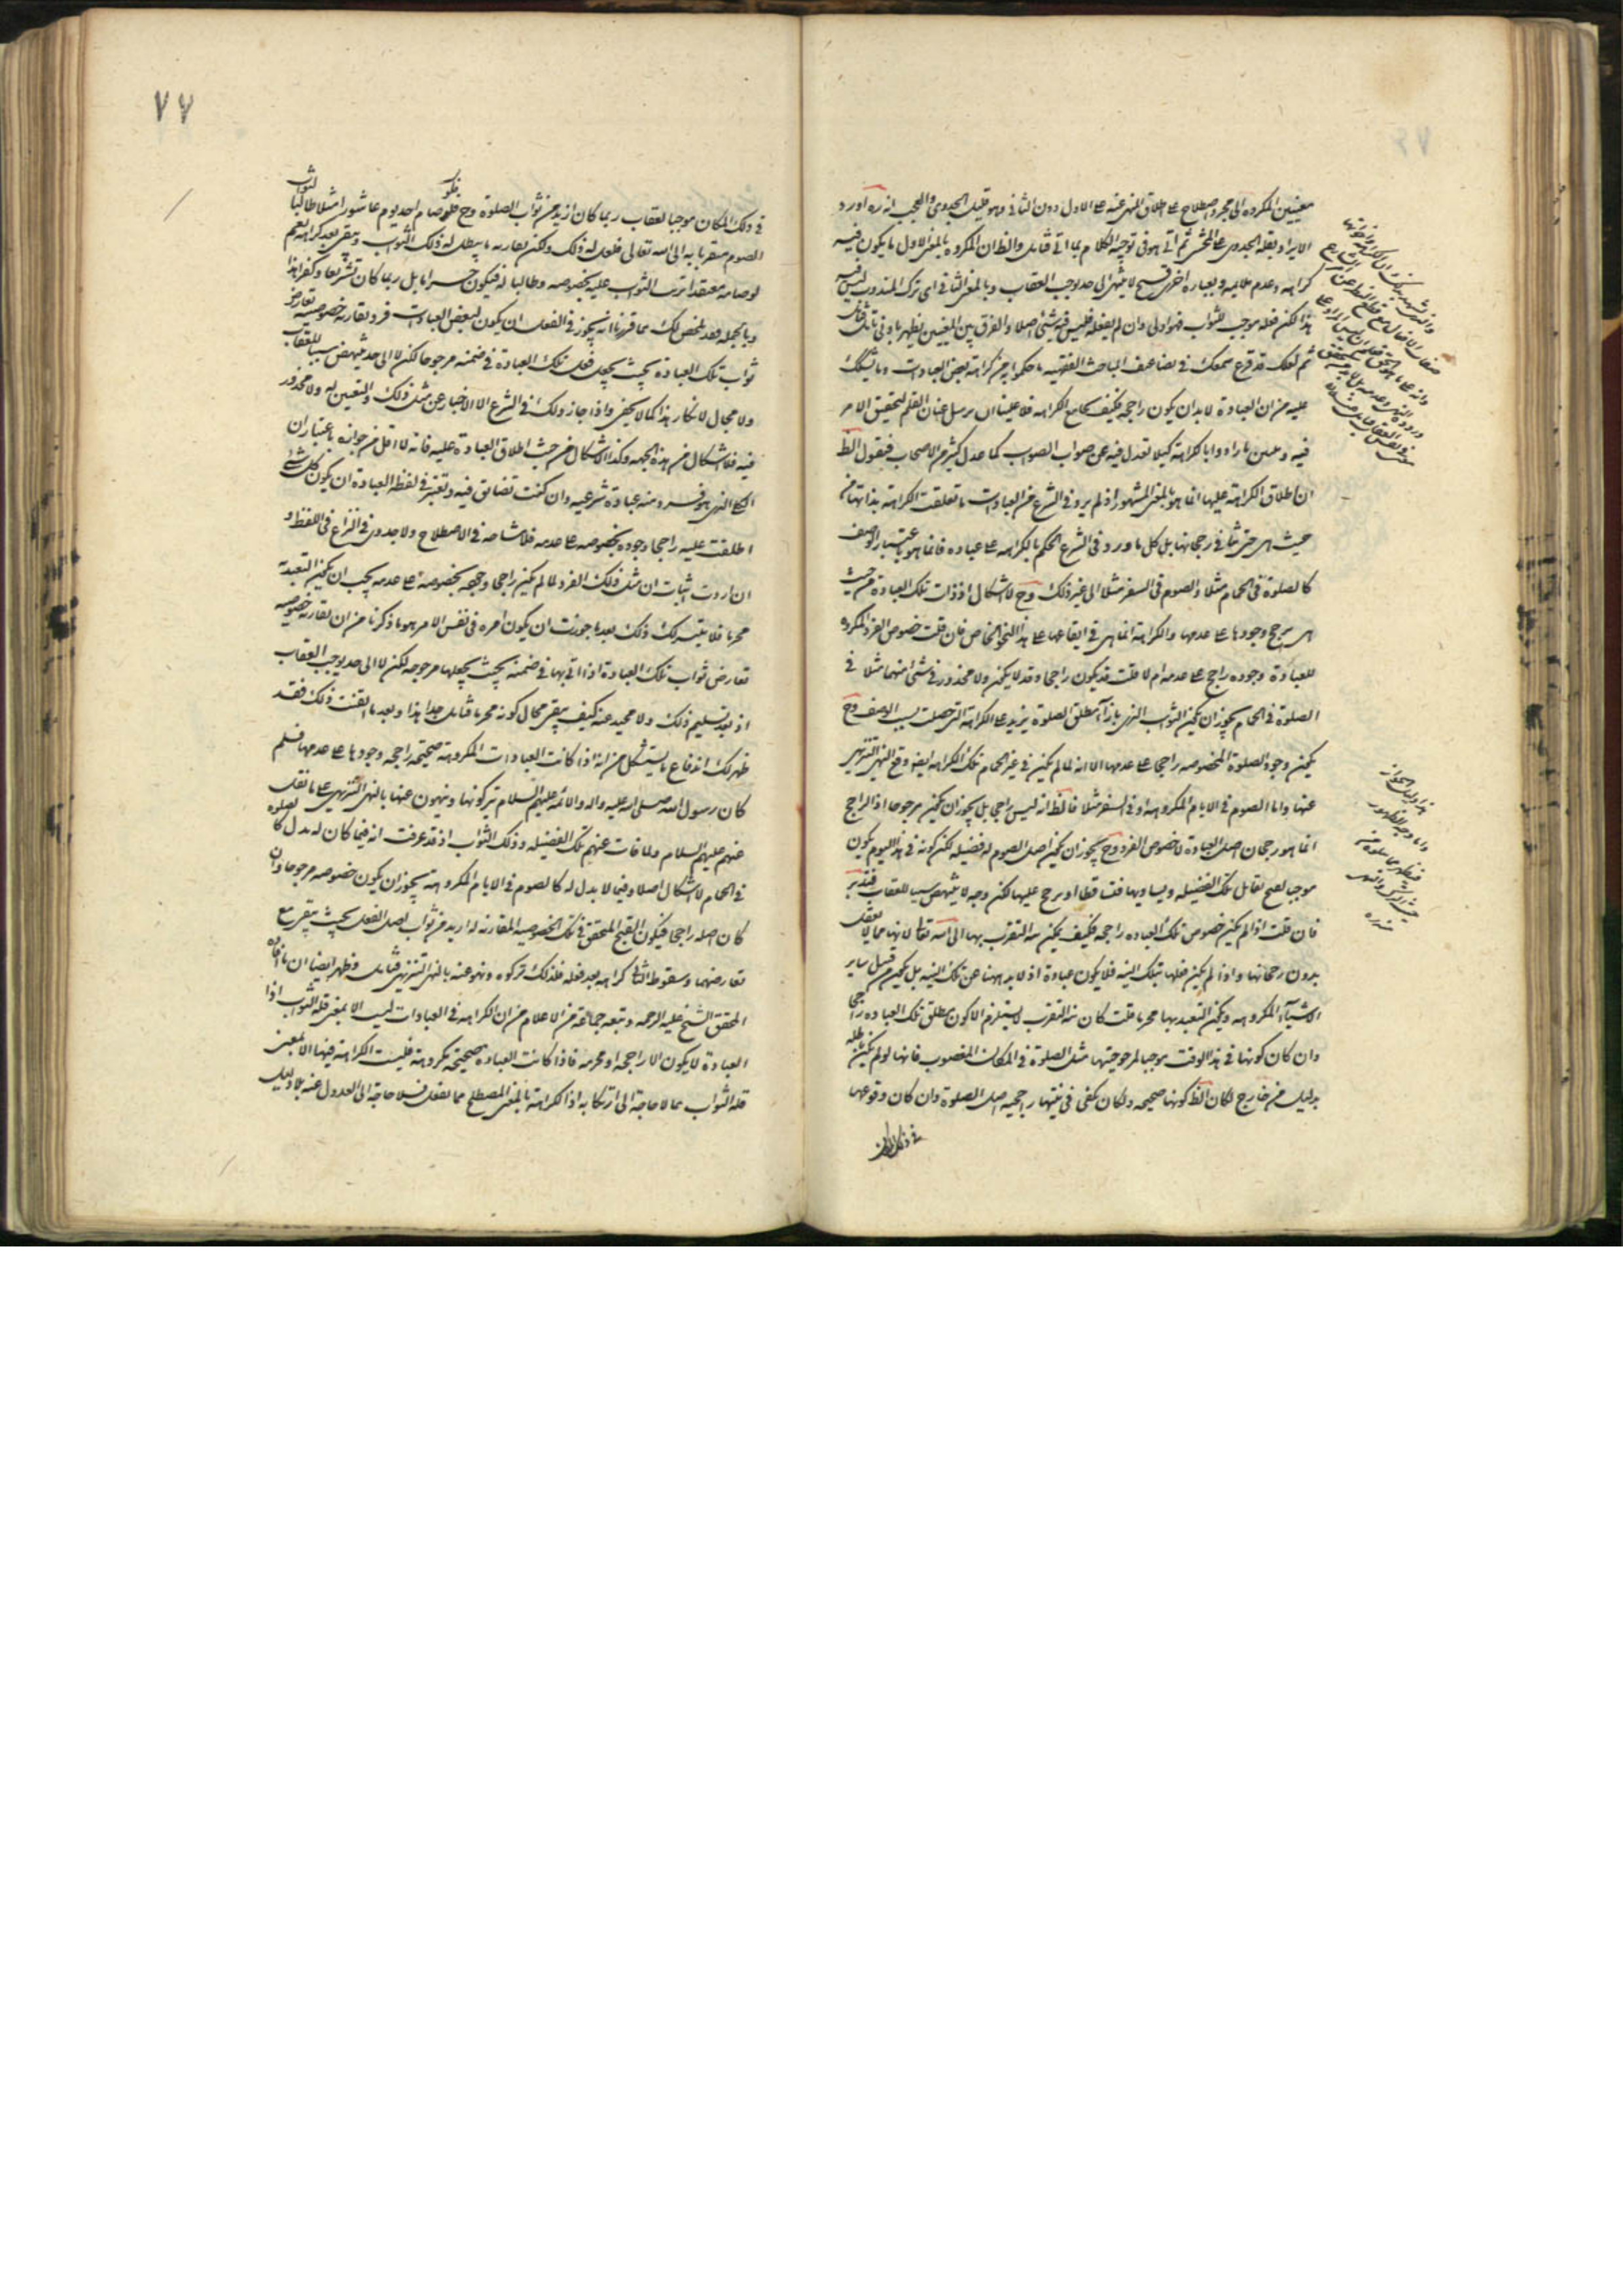 معنيين المكروه الى مجرد اصطلاح على اطلاق المنهى عنه على الاول دون الثانى وهو قليل الجدوى والعجب انه ره اورد
الايراد بقلة الجدوى على المحشى ثم اتى هو فى توجيه الكلام بما اتى فتامل والظ ان المكروه بالمعنى الاول ما يكون فيه
كراهة وعدم ملايمة وبعبارة اخرى قبح لا ينتهى الى حد يوجب العقاب وبالمعنى الثانى اى ترك المندوب ليس فيه
هذا لكن فعله موجب للثواب فهو اولى وان لم يفعله فليس فيه شئ اصلا والفرق بين المعنيين يظهر بادنى تامل فتامل
ثم لعلك قد قرع سمعك فى تضاعيف المباحث الفقهية ما حكموا به من كراهة بعض العبادات وما يشكك
عليه من ان العبادة لا بد ان يكون راجحة فكيف يجامع الكراهة فلا علينا ان نرسل عنان القلم لتحقيق الامر
فيه كيلا تعدل فيه عن صواب الصواب كما عدل كثير من الاصحاب فنقول الظ
ان اطلاق الكراهة عليها انما هو بالمعنى المشهور اذ لم يرد فى الشرع من العبادات ما تعلقت الكراهة بذاتها من
حيث هى حتى ينافى رجحانها بل كل ما ورد فى الشرع الحكم بالكراهة على عبادة فانما هو باعتبار الوصف
كالصلوة فى الحمام مثلا والصوم فى السفر مثلا الى غير ذلك وح لا اشكال اذ ذات تلك العبادة من حيث
هى يرجح وجودها على عدمها والكراهة انما هى فى ايقاعها على هذا النحو الخاص فان قلت خصوص الفرد المكروه
للعبادة وجوده راجح على عدمه ام لا قلت قد يكون راجحا وقد لا يكون ولا محذور فى شئ منهما مثلا فى
الصلوة فى الحمام يجوز ان يكون الثواب الذى بازاء مطلق الصلوة يزيد على الكراهة التى حصلت بسبب الوصف وح
يكون وجود الصلوة المخصوصة راجحا على عدمها الا انه لما لم يكن فى غير الحمام تلك الكراهة ايضا وقع النهى التنزيهى
عنها واما الصوم فى الايام المكروهة او فى السفر مثلا فالظ انه ليس راجحا بل يجوز ان يكون مرجوحا اذ الراجح
انما هو رجحان اصل العبادة لا خصوص الفرد وح يجوز ان يكون اصل الصوم له فضيلة لكن كونه فى هذا اليوم يكون
موجبا لقبح تقابل تلك الفضيلة ويساويها فتساقطا او يرجح عليها لكن وجه لا ينتهض سببا للعقاب فتدبر
فان قلت اذا لم يكن خصوص تلك العبادة راجحة فكيف يمكن نية التقرب بها الى الله تعالى لانها مما لا تعقل
بدون رجحانها واذا لم يكن فعلها بتلك النية فلا يكون عبادة اذ لا بد ههنا من تلك النية بل يكون من قبيل ساير
الاشياء المكروهة ويكون التعبد بها محرما قلت كان نية التقرب لا يستلزم الا كون مطلق تلك العبادة راجحا
وان كان كونها فى هذا الوقت موجبا لمرجوحيتها مثل الصلوة فى المكان المغصوب فانها لو لم يكن باطلة
بدليل من خارج لكان الظ كونها صحيحة ولكان يكفى فى نيتها راجحية اصل الصلوة وان كان وقوعها
فى ذلك المكان
٧٧
فى ذلك المكان موجبا لعقاب ربما كان ازيد من ثواب الصلوة وح فلو صام احد يوم عاشورا مثلا طالبا لثواب
الصوم متقربا به الى الله تعالى فلعل له ذلك ولكن يقارنه ما يبطل له ذلك الثواب ويبقى بعد كراهة نعم
لو صامه معتقدا ترتب الثواب عليه بخصوصه وطالبا له فيكون حراما بل ربما كان تشريعا وكفرا هذا
وبالجملة فقد تلخص لك مما قررنا انه يجوز فى العقل ان يكون لبعض العبادات فرد يقارنه خصوصية تعارض
ثواب تلك العبادة بحيث يجعل فعل تلك العبادة فى ضمنه مرجوحا لكن لا الى حد ينتهض سببا للعقاب
ولا مجال لانكار هذا كما لا يخفى واذا جاز ذلك فى الشرع الا الاخبار عن مثل ذلك والتعيين له ولا محذور
فيه فلا اشكال من هذه الجهة وكذا لا اشكال من حيث اطلاق العبادة عليه فانه لا اقل من جوازه باعتبار ان
الكلى الذى هو فرد منه عبادة شرعية وان كنت تضايق فيه وتعتبر فى لفظ العبادة ان يكون كل شئ
اطلقت عليه راجحا وجوده بخصوصه على عدمه فلا مشاحة فى الاصطلاح ولا جدوى فى النزاع فى اللفظ و
ان اردت اثبات ان مثل ذلك الفرد لما لم يكن راجحا وجوده بخصوصه على عدمه يجب ان يكون التعبد به
محرما فلا يتيسر لك ذلك بعد ما جوزت ان يكون امره فى نفس الامر هو ما ذكرنا من ان يقارنه خصوصية
تعارض ثواب تلك العبادة اذا اتى بها فى ضمنه بحيث يجعلها مرجوحة لكن لا الى حد يوجب العقاب
اذ بعد تسليم ذلك ولا محيد عنه كيف يبقى مجال كونه محرما فتامل جدا هذا وبعد ما اتقنت ذلك فقد
ظهر لك اندفاع ما يستشكل من انه اذا كانت العبادات المكروهة صحيحة راجحة وجودها على عدمها فلم
كان رسول الله صلى الله عليه واله والائمة عليهم السلام يتركونها وينهون عنها بالنهى التنزيهى على ما نقل
عنهم عليهم السلام ولما فات عنهم تلك الفضيلة وذلك الثواب اذ قد عرفت انه فيما كان له بدل كالصلوة
فى الحمام لا اشكال اصلا وفيما لا بدل له كالصوم فى الايام المكروهة يجوز ان يكون خصوصه مرجوحا وان
كان اصله راجحا فيكون القبح المتحقق فى تلك الخصوصية المقارنة له ازيد من ثواب اصل الفعل بحيث يبقى مع
تعارضهما وسقوط الثانى كراهة بعد فعله فلذلك تركوه ونهو عنه بالنهى التنزيهى فتامل وظهر ايضا ان ما افاده
المحقق الشيخ عليه الرحمة وتبعه جماعة من الاعلام من ان الكراهة فى العبادات ليست الا بمعنى قلة الثواب اذا
العبادة لا يكون الا راجحة او محرمة فاذا كانت العبادة صحيحة مكروهة فليست الكراهة فيها الا بمعنى
قلة الثواب مما لا حاجة الى ارتكابه اذ الكراهة بالمعنى المصطلح مما يعقل فلا حاجة الى العدول عنه بلا دليل